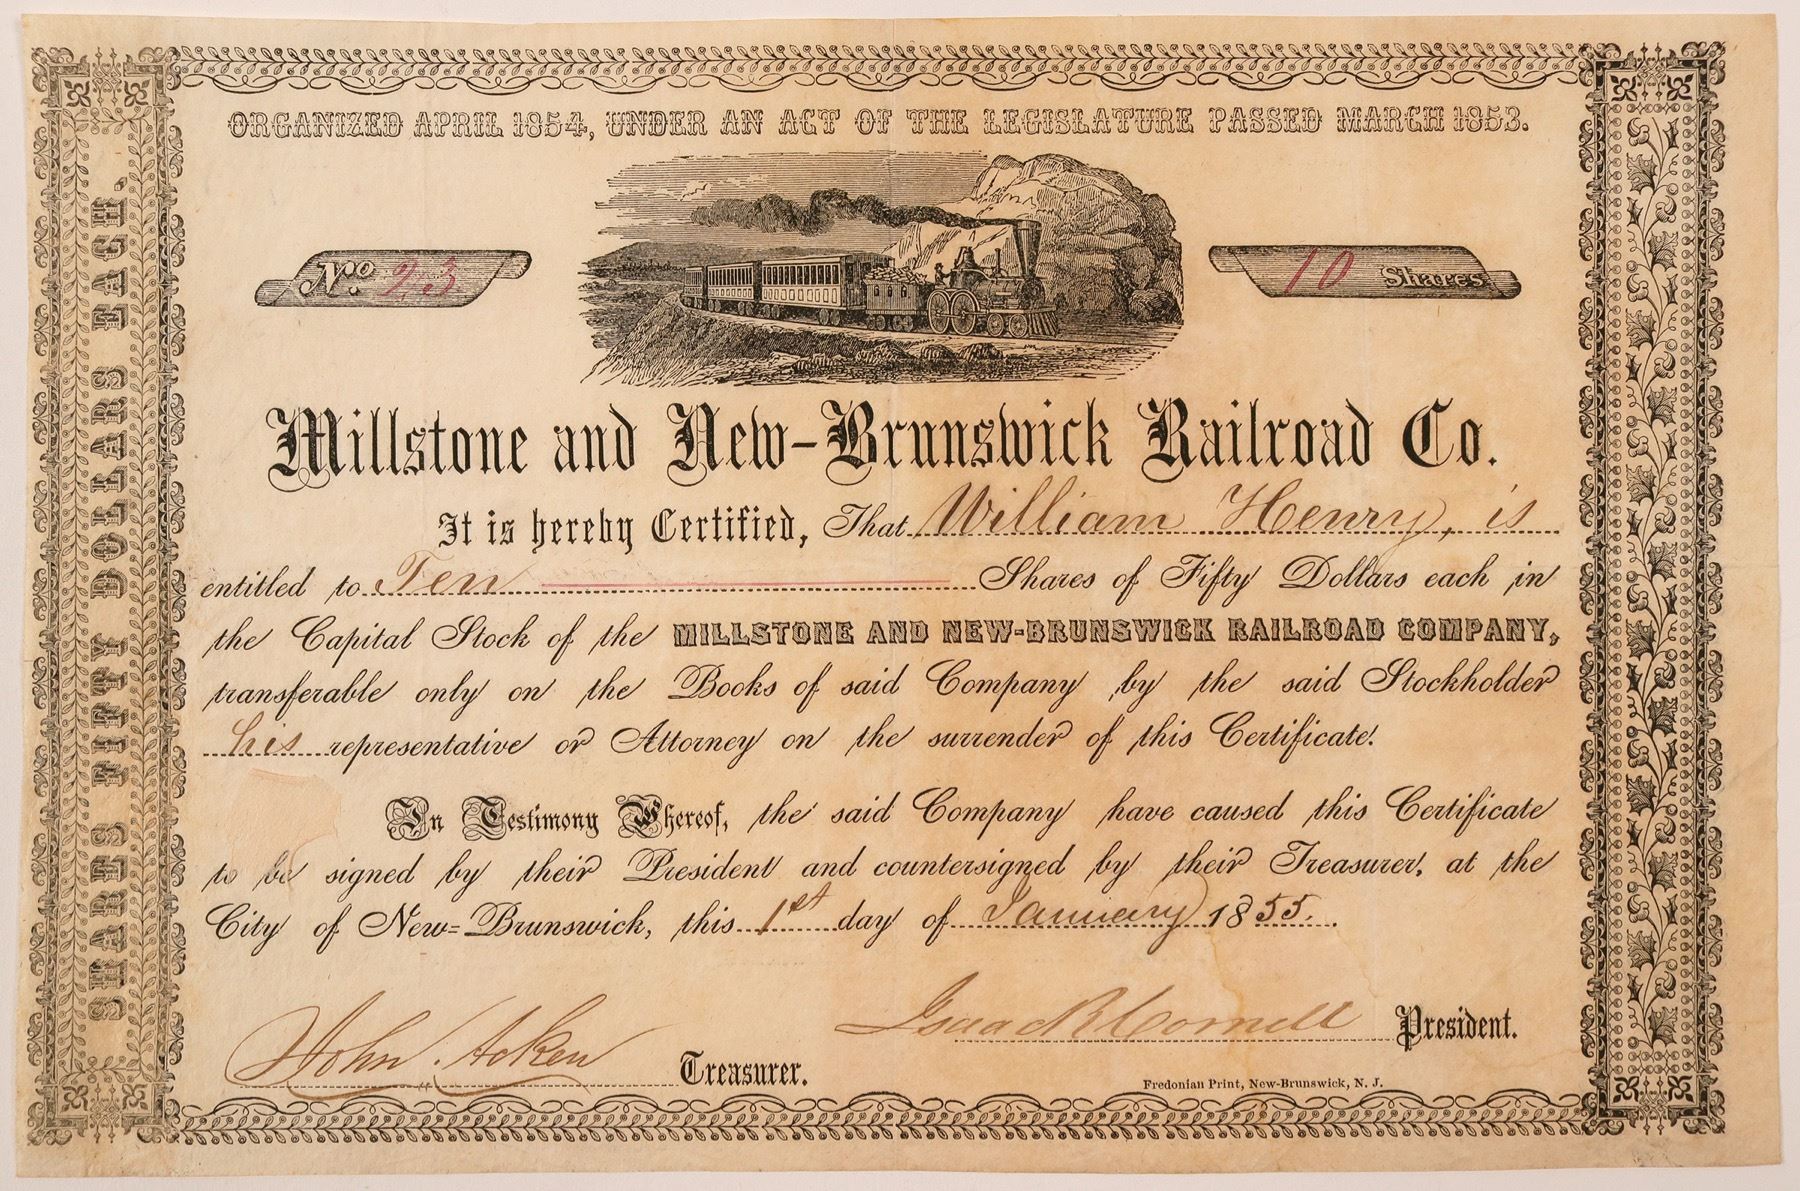 ORGANIZED APRIL 1854, UNDER AN ACT OF THE LEGISLATURE PASSED MARCH 1853.
No. 23
10 Shares
Millstone and New-Brunswick Railroad Co.
It is hereby Certified, That William Henry, is
entitled to Ten Shares of Fifty Dollars each in
the Capital Stock of the MILLSTONE AND NEW-BRUNSWICK RAILROAD COMPANY,
transferable only on the Books of said Company by the said Stockholder
his representative or Attorney on the surrender of this Certificate.
In Testimony Whereof, the said Company have caused this Certificate
to be signed by their President and countersigned by their Treasurer, at the
City of New-Brunswick, this 1st day of January 1855.
Isaac R Cornell President.
John Acken Treasurer.
Fredonian Print, New-Brunswick, N. J.
SHARES FIFTY DOLLARS EACH.